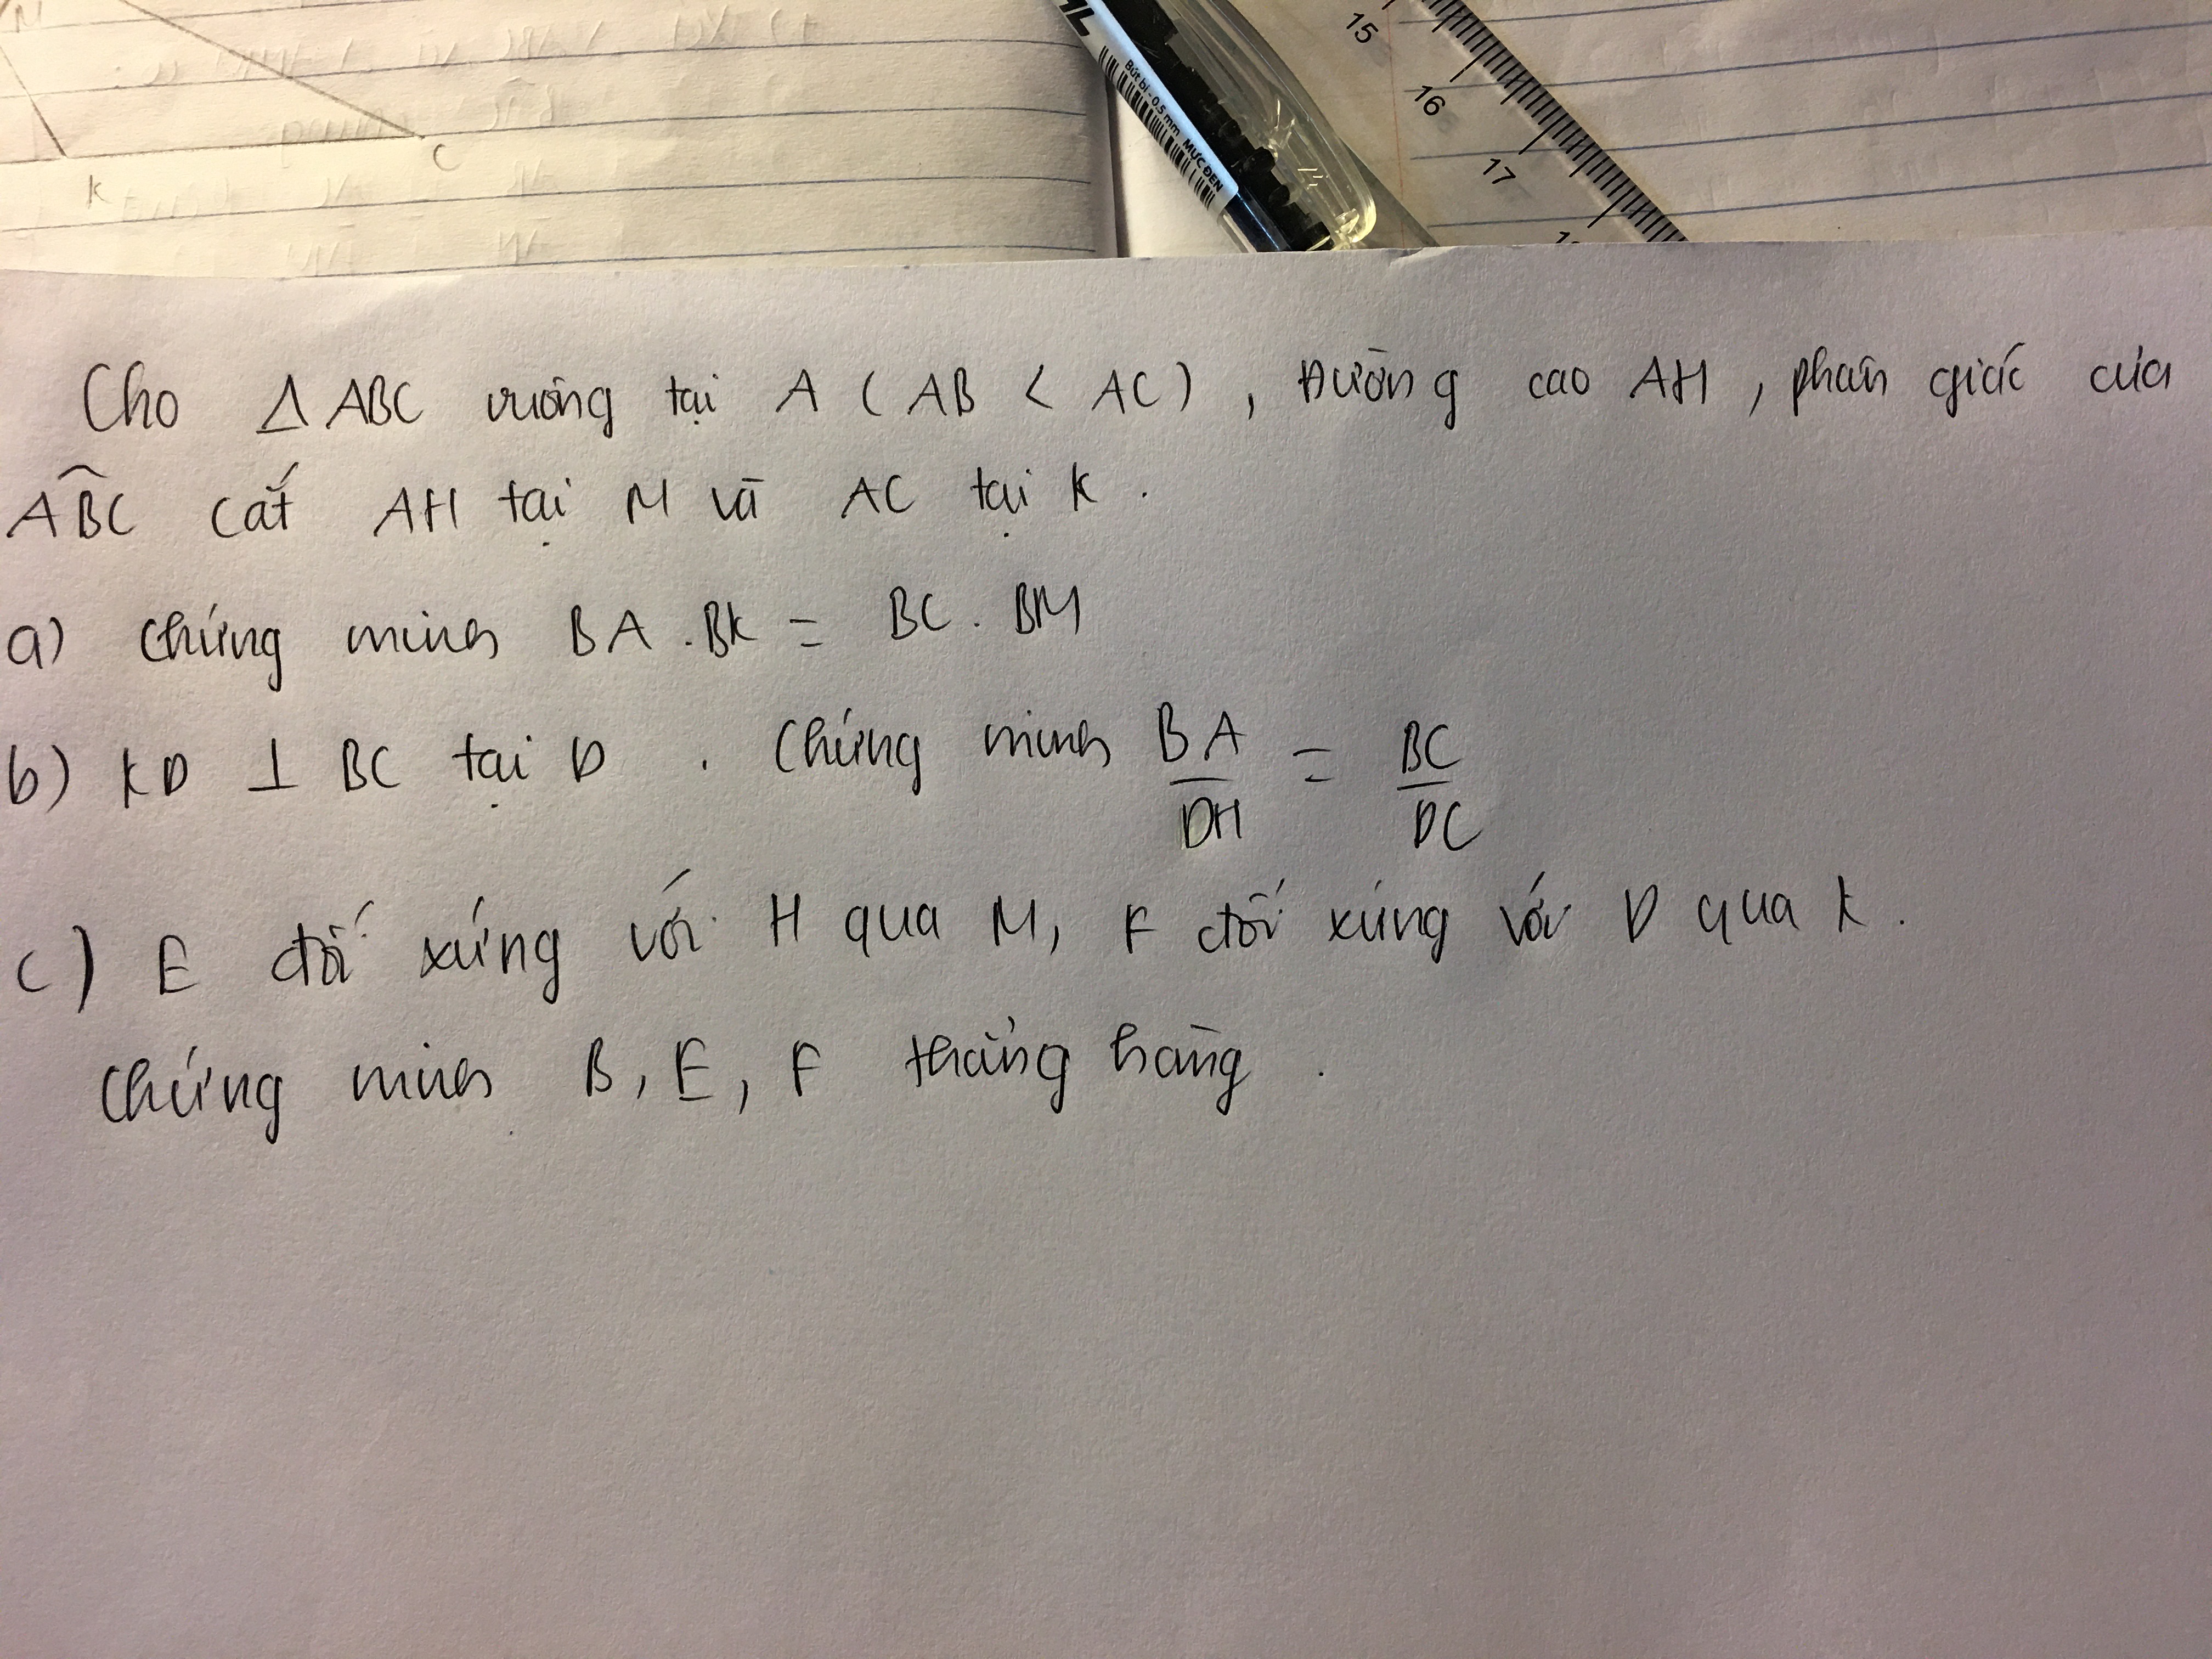 M
C
K
HL
Bút bi - 0.5 mm MỰC ĐEN
15
16
17
Cho Δ ABC vuông tại A ( AB < AC ) , Đường cao AH , phân giác của
ABC cắt AH tại M và AC tại K .
a) Chứng minh BA . BK = BC . BM
b) KD ⊥ BC tại D . Chứng minh BA/DH = BC/DC
c) E đối xứng với H qua M, F đối xứng với D qua K .
Chứng minh B, E, F thẳng hàng .